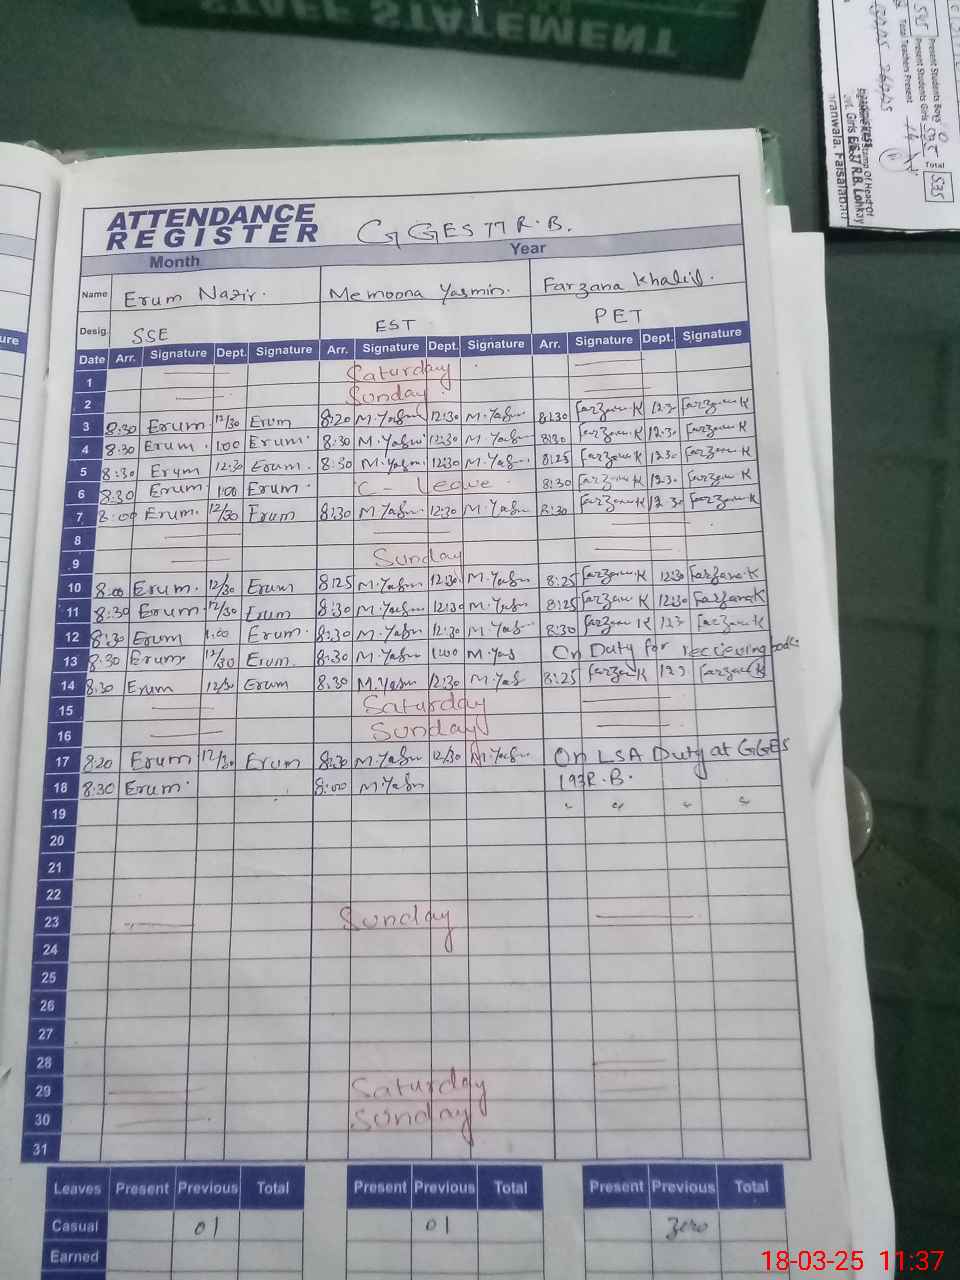 STAFF STATEMENT
Present Students Boys 0
Present Students Girls 535
Total 535
Total Teachers Present 14
Girls E/S 77 R.B. Lohkay
ATTENDANCE
REGISTER
G GES 77 R.B.
Month Year
Name Erum Nazir. Memoona Yasmin. Farzana Khalil.
Desig. SSE EST PET
Date Arr. Signature Dept. Signature Arr. Signature Dept. Signature Arr. Signature Dept. Signature
1 Saturday
2 Sunday
3 8:30 Erum 12/30 Erum 8:20 M.Yasm 12:30 M.Yasm 8:30 Farzana K 12:30 Farzana K
4 8:30 Erum. 1:00 Erum. 8:30 M.Yasm 12:30 M.Yasm 8:30 Farzana K 12:30 Farzana K
5 8:30 Erum 12:30 Erum. 8:30 M.Yasm 12:30 M.Yasm 8:25 Farzana K 12:30 Farzana K
6 8:30 Erum. 1:00 Erum. C - Leave. 8:30 Farzana K 12:30 Farzana K
7 8:00 Erum. 12/30 Erum 8:30 M.Yasm 12:30 M.Yasm 8:30 Farzana K 12:30 Farzana K
8
9 Sunday
10 8:00 Erum. 12/30 Erum 8:25 M.Yasm 12:30 M.Yasm 8:25 Farzana K 12:30 Farzana K
11 8:30 Erum 12/30 Erum 8:30 M.Yasm 12:30 M.Yasm 8:25 Farzana K 12:30 Farzana K
12 8:30 Erum 1:00 Erum. 8:30 M.Yasm 12:30 M.Yas 8:30 Farzana K 12:3 Farzana K
13 8:30 Erum. 12/30 Erum. 8:30 M.Yasm 1:00 M.Yas On Duty for recieving books
14 8:30 Erum 12/30 Erum 8:30 M.Yasm 12:30 M.Yas 8:25 Farzana K 12:3 Farzana K
15 Saturday
16 Sunday
17 8:20 Erum 12/30 Erum 8:30 M.Yasm 12/30 M.Yasm On LSA Duty at GGES
18 8:30 Erum. 8:00 M.Yasm 193 R.B.
19 " " " "
20
21
22
23 Sunday
24
25
26
27
28
29 Saturday
30 Sunday
31
Leaves Present Previous Total Present Previous Total Present Previous Total
Casual 01 01 Zero
Earned
18-03-25 11:37